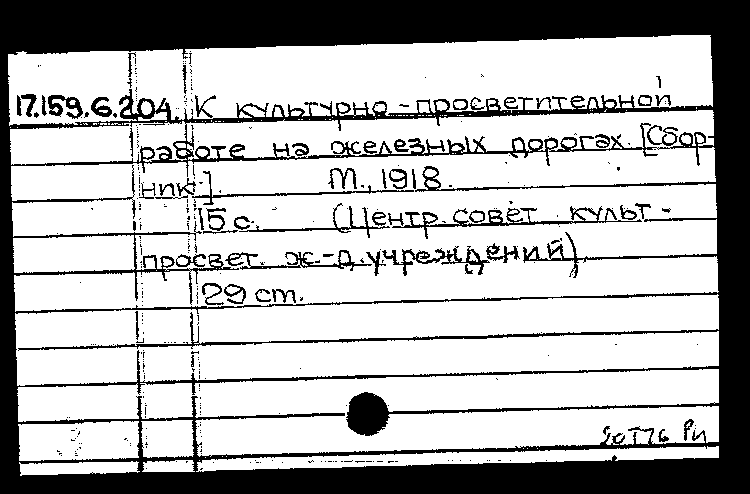 17.159.6.204. К культурно-просветительной
работе на железных дорогах. [Сбор-
ник]. М., 1918.
15 с. (Центр. совет культ-
просвет. ж.-д. учреждений).
29 cm.